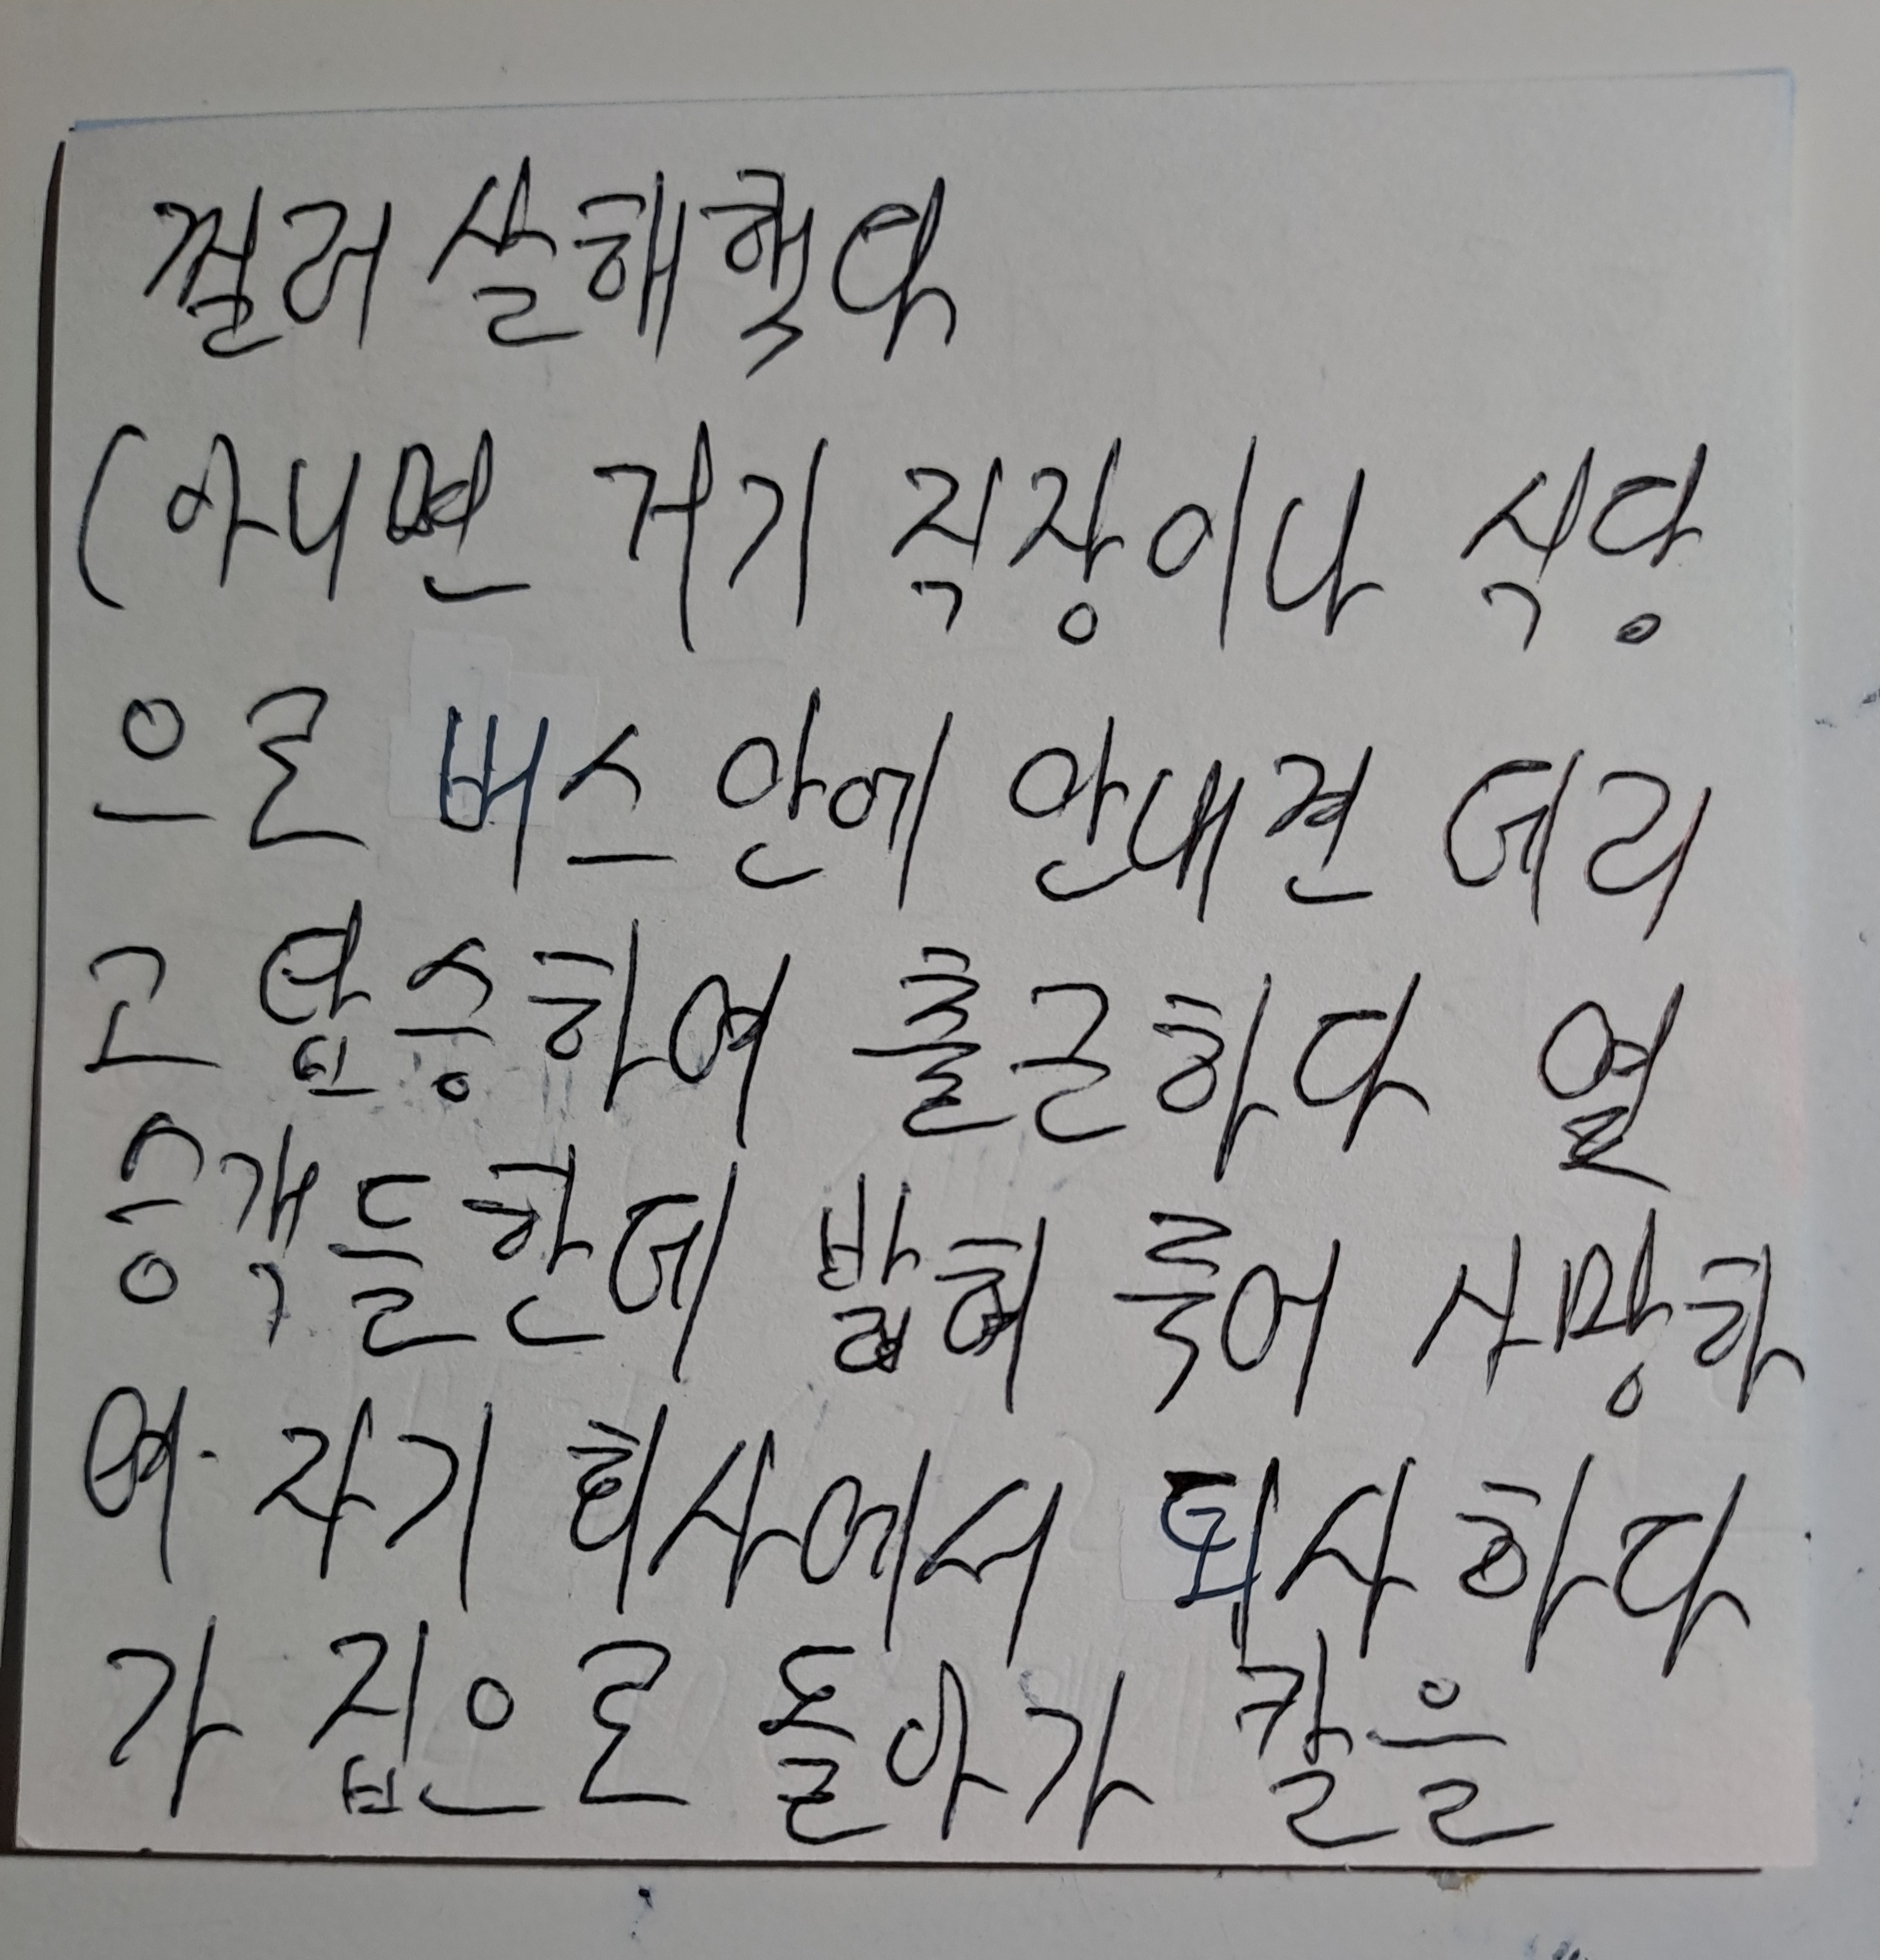 찔러 살해했다
(아니면 거기 직장이나 식당
으로 버스 안에 안내견 데리
고 탑승하여 출근하다 열
승객들한테 밟혀 죽어 사망하
여. 자기 회사에서 퇴사하다
가 집으로 돌아가 칼을